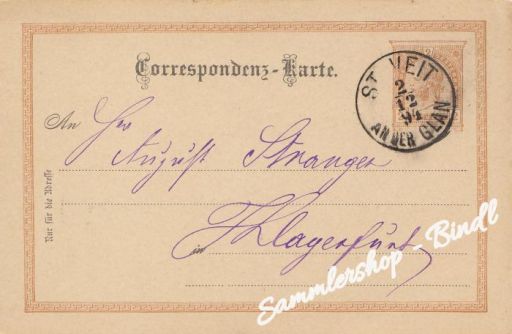 Correspondenz-Karte.
ST. VEIT
2/12
94
AN DER GLAN
An Herr
August Stranger
in Klagenfurt
Nur für die Adresse
Sammlershop - Bindl